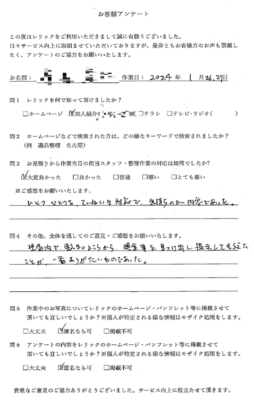 お客様アンケート
この度はレリックをご利用いただきまして誠に有難うございました。
日々サービス向上に取組ませていただいておりますが、是非ともお客様方のお声も頂戴したく、アンケートのご協力をお願いいたします。
お名前: 作業日: 2024年 1月26,27日
問1 レリックを何で知って頂けましたか?
□ホームページ ☑知人紹介 □チラシ □テレビ・ラジオ( )
問2 ホームページなどで検索された方は、どの様なキーワードで検索されましたか?
(例 遺品整理 名古屋)
問3 お見積りから作業当日の担当スタッフ・整理作業の対応は如何でしたか?
☑大変良かった □良かった □普通 □悪い □とても悪い
※ご感想をお願いいたします。
ひとつひとつを、ていねいな対応で、気持ちの 内容であった。
問4 その他、全体を通してのご意見・ご感想をお願いいたします。
現場内で、 ところから、 を見つけ出し 見せて
ことが、一番ありがたいものであった。
問5 作業中のお写真についてレリックのホームページ・パンフレット等に掲載させて
頂いても宜しいでしょうか?※個人が特定される様な情報はモザイク処理をします。
□大丈夫 ☑匿名なら可 □掲載不可
問6 アンケートの内容をレリックのホームページ・パンフレット等に掲載させて
頂いても宜しいでしょうか?※個人が特定される様な情報はモザイク処理をします。
□大丈夫 ☑匿名なら可 □掲載不可
貴重なご意見のご協力ありがとうございました。サービス向上に役立たせて頂きます。